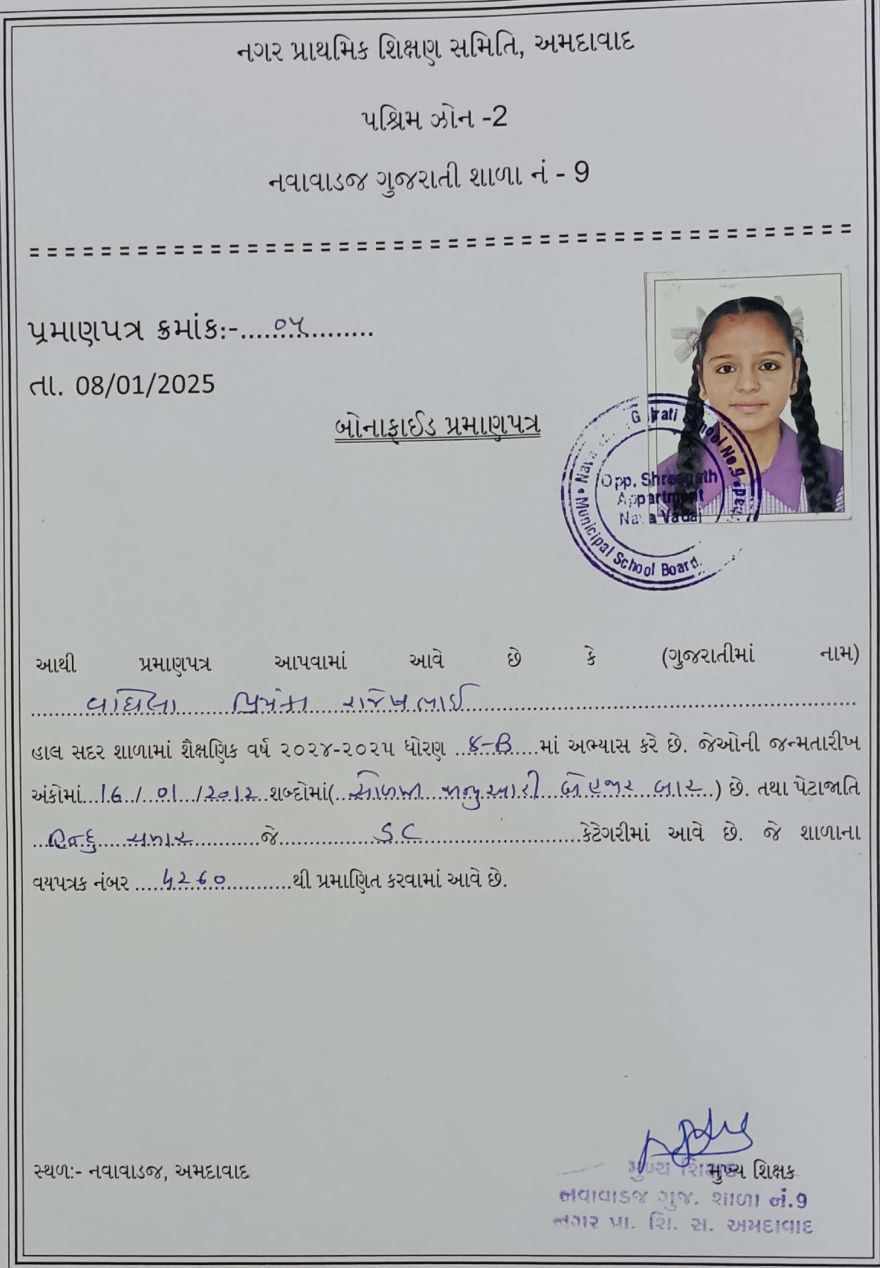 નગર પ્રાથમિક શિક્ષણ સમિતિ, અમદાવાદ
પશ્ચિમ ઝોન -2
નવાવાડજ ગુજરાતી શાળા નં - 9
પ્રમાણપત્ર ક્રમાંક:-....૦૫..........
તા. 08/01/2025
બોનાફાઈડ પ્રમાણપત્ર
Gujrati School No 9
Opp. Shreenath
Appartment
Nava Vadaj
Municipal School Board.
આથી પ્રમાણપત્ર આપવામાં આવે છે કે (ગુજરાતીમાં નામ)
વાઘેલા પ્રિયંકા રાજેશભાઈ
હાલ સદર શાળામાં શૈક્ષણિક વર્ષ ૨૦૨૪-૨૦૨૫ ધોરણ ..૪-B....માં અભ્યાસ કરે છે. જેઓની જન્મતારીખ
અંકોમાં...16../..01../2012..શબ્દોમાં(..સોળમી જાન્યુઆરી બે હજાર બાર..) છે. તથા પેટાજાતિ
..હિન્દુ ચમાર..........જે..............SC..........................કેટેગરીમાં આવે છે. જે શાળાના
વયપત્રક નંબર .....5260............થી પ્રમાણિત કરવામાં આવે છે.
સ્થળ:- નવાવાડજ, અમદાવાદ
મુખ્ય શિક્ષક
મુખ્ય શિક્ષક
નવાવાડજ ગુજ. શાળા નં.9
નગર પ્રા. શિ. સ. અમદાવાદ